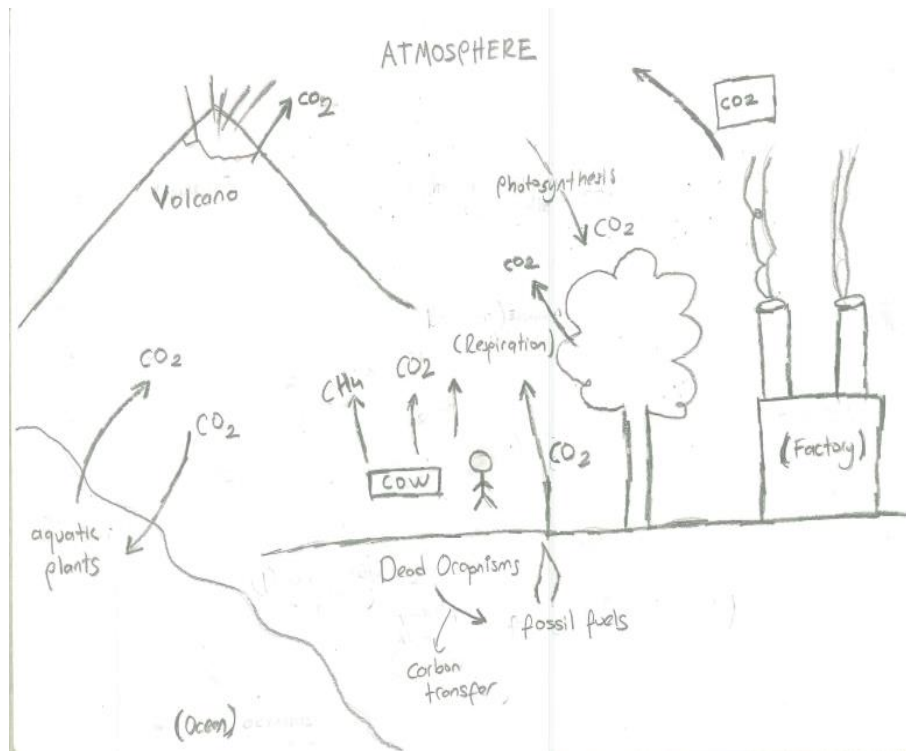 ATMOSPHERE
CO2
CO2
Volcano
photosynthesis
CO2
CO2
(Respiration)
CO2
CO2
CH4
CO2
CO2
(Factory)
cow
aquatic
plants
Dead Organisms
fossil fuels
Carbon
transfer
(Ocean)